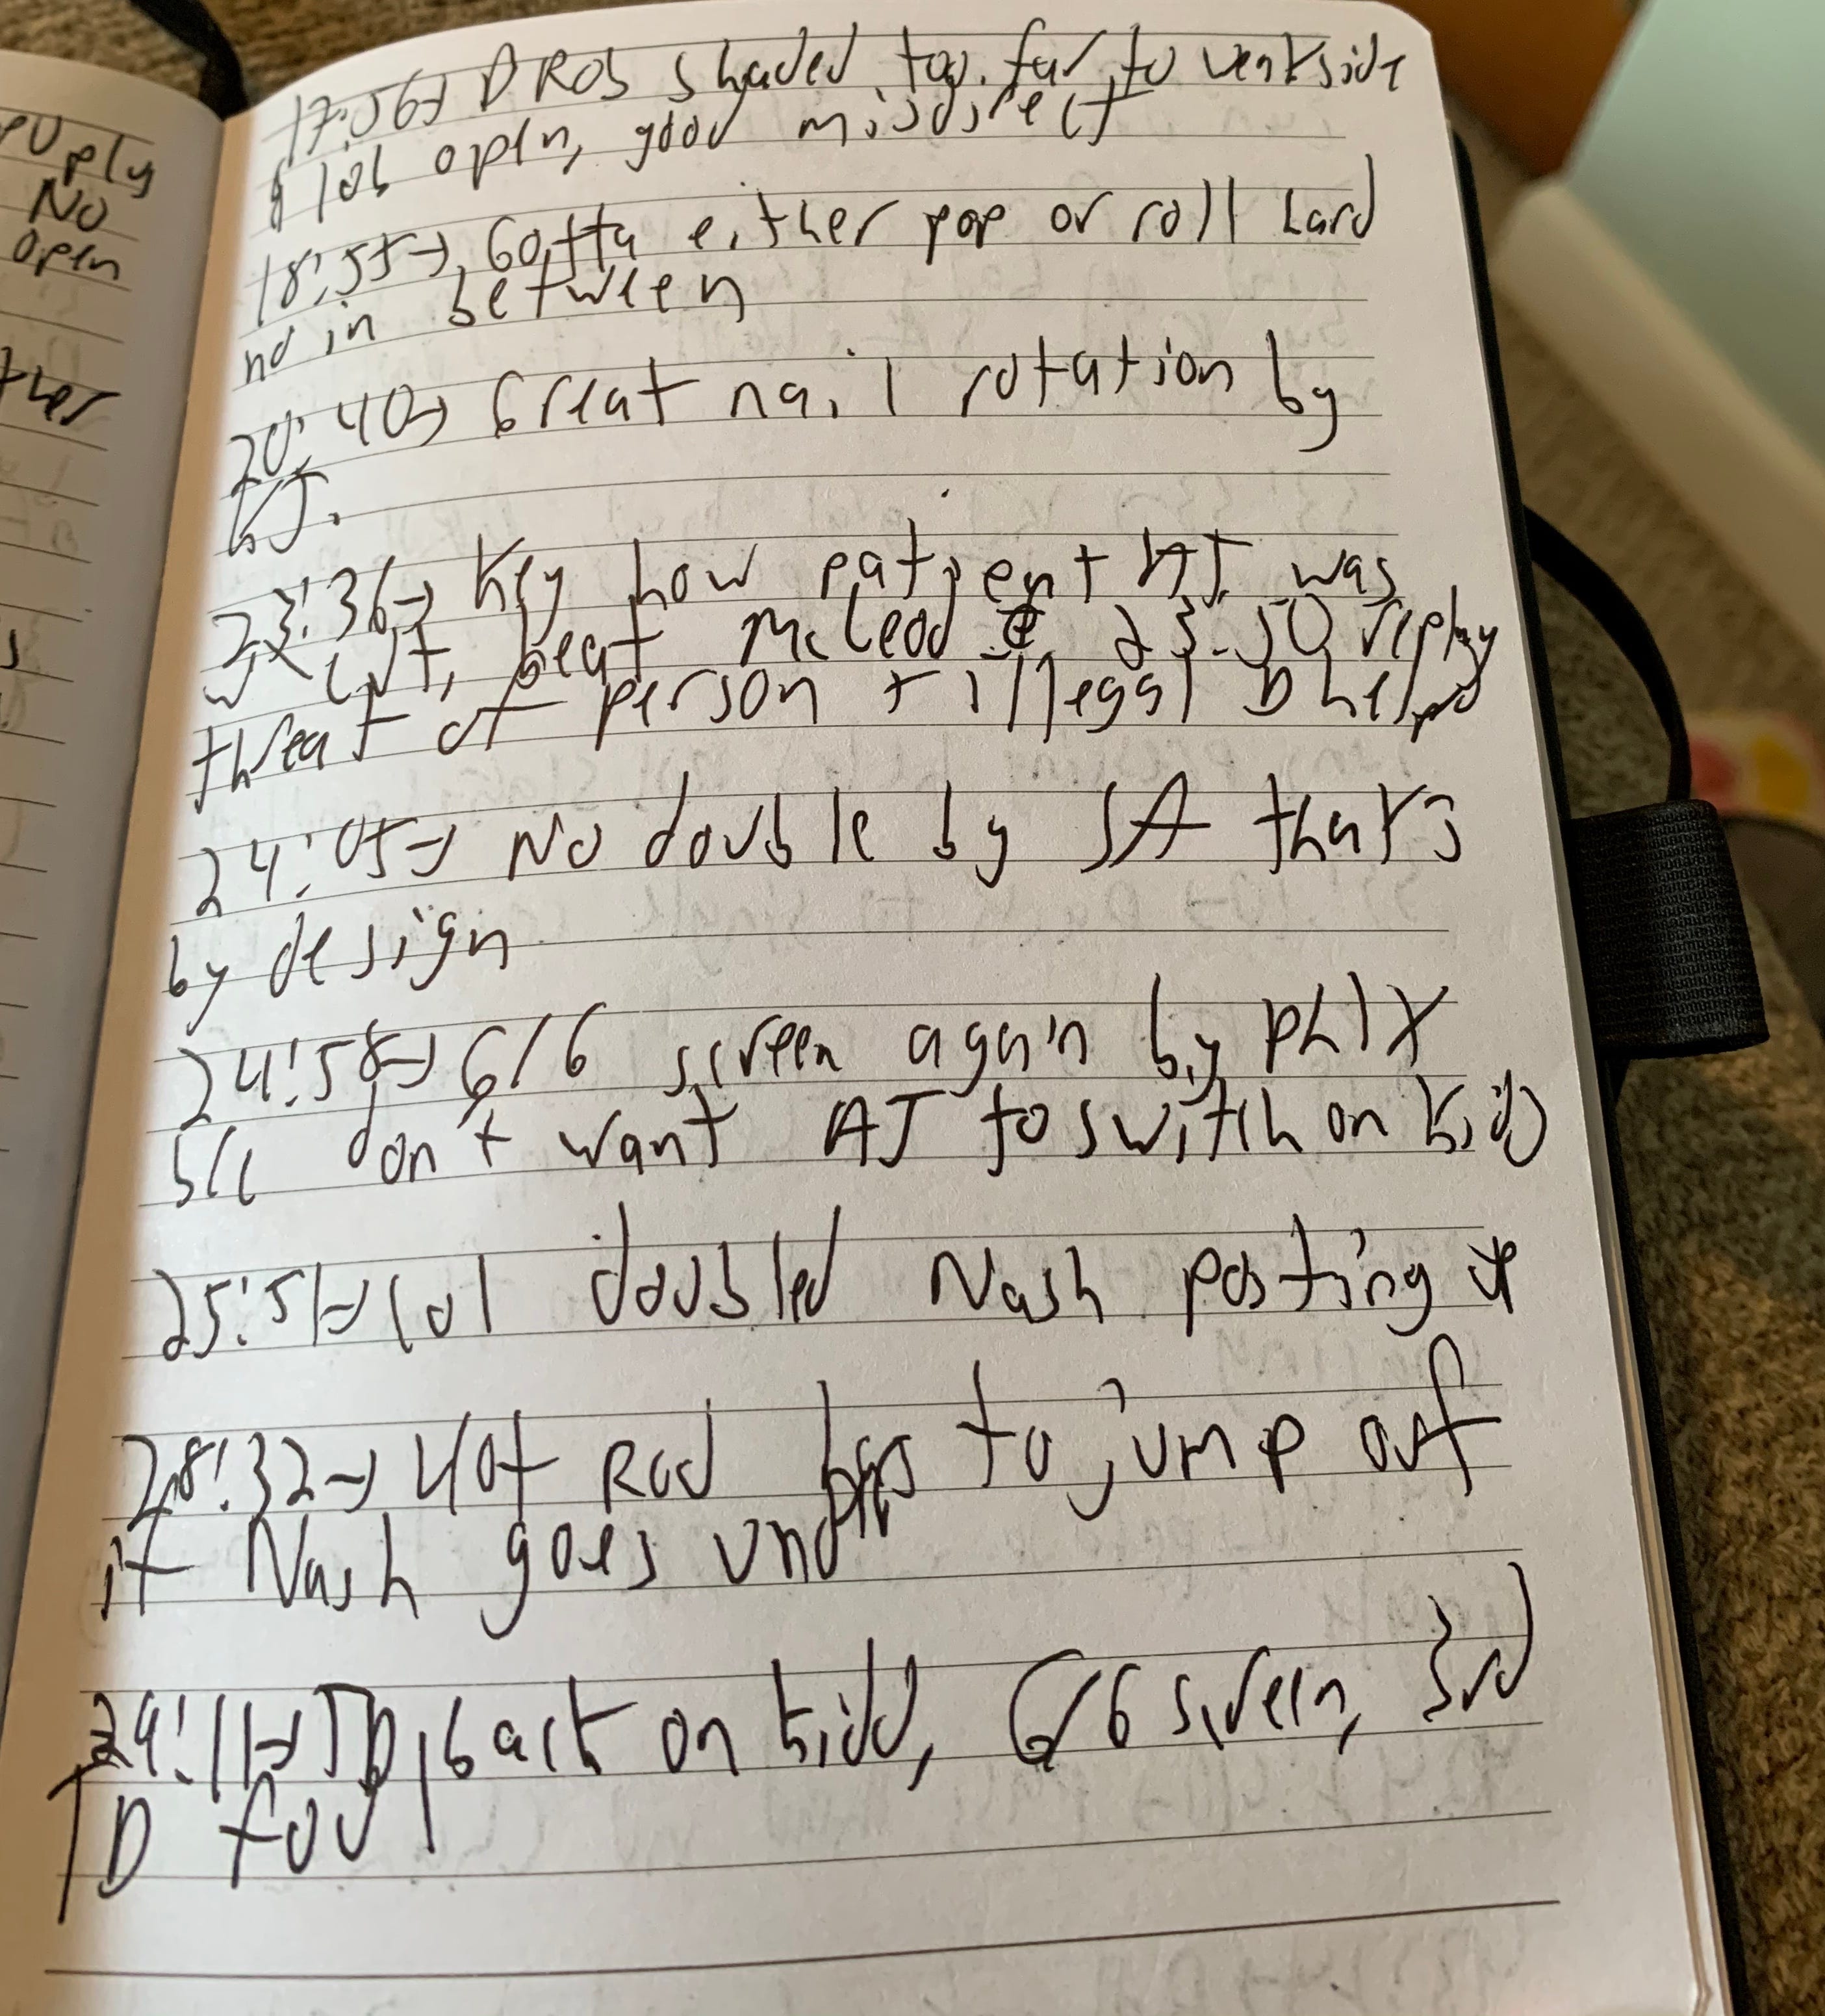 uply
No
open
ther
17:56→ DROb shaded too far to weakside
& lob open, good misdirect
18:55→ Gotta either pop or roll hard
no in between
20:40→ Great nail rotation by
KJ.
23:36→ Key how patient KJ was
w/ cut, beat McCleod @ 23:50 replay
threat of person + illegal D help
24:05→ No double by SA that's
by design
24:58→ 6/6 screen again by PHIX
b/c don't want AJ to switch on Kidd
25:51→ lol doubled Nash posting up
28:32→ Hot Rod has to jump out
if Nash goes under
29:11→ TD back on Kidd, G/G screen, 3rd
TD foul